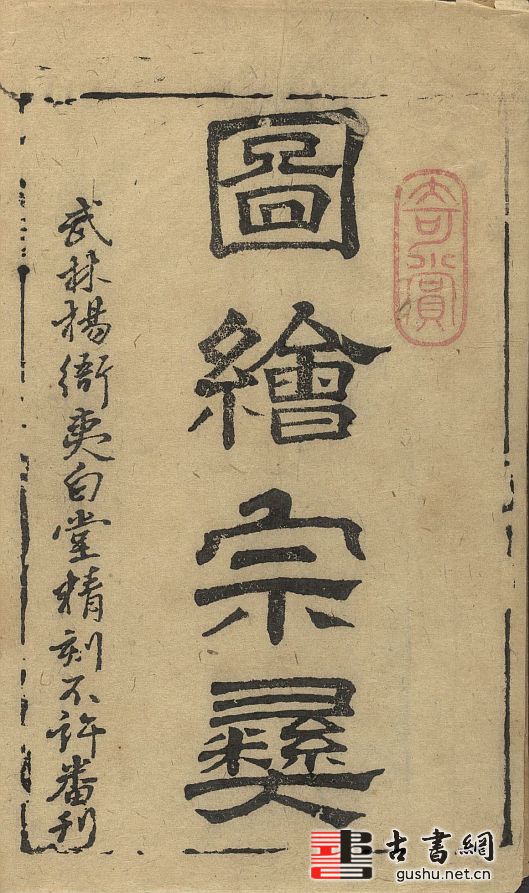 奇賞
圖繪宗彝
武林楊衙夷白堂精刻不許番刊
古書網
gushu.net.cn